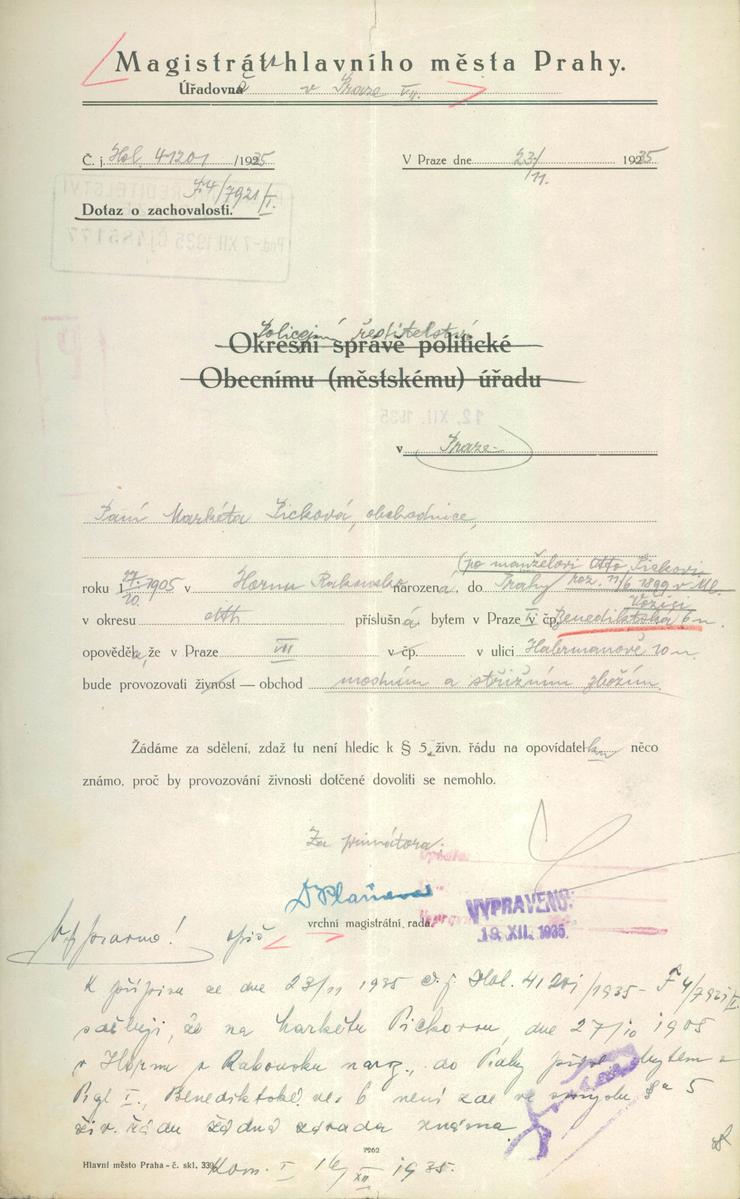 Magistrát hlavního města Prahy.
Úřadovna v Praze VII.
Č. j. Hol. 41201 /1935
V Praze dne 23/11. 1935
F4/7921/I.
Dotaz o zachovalosti.
Policejní ředitelství
Okresní správě politické
Obecnímu (městskému) úřadu
12. XII. 1935
v Praze
Paní Markéta Picková, obchodnice,
(po manželovi Otto Pickovi
roku 1 27/10. 1905 v Horním Rakousku narozená, do Prahy roz. 11/6 1899 v Ml.
Vožici
v okresu příslušná bytem v Praze čp. Benediktská 6 n.
opověděla, že v Praze VII v čp. v ulici Habrmanově 10 n.
bude provozovati živnost — obchod modním a střižním zbožím.
Žádáme za sdělení, zdaž tu není hledíc k § 5. živn. řádu na opovídatelku něco
známo, proč by provozování živnosti dotčené dovoliti se nemohlo.
Za primátora:
vrchní magistrátní rada.
VYPRAVENO:
19. XII. 1935
opis
K přípisu ze dne 23/11 1935 č. j. Hol. 41201/1935 - F4/7921/I.
sděluji, že na Markétu Pickovou, dne 27/10 1905
v Horním Rakousku naroz., do Prahy přísl. bytem v
Praze I., Benediktské ul. 6 není zde ve smyslu §u 5
živ. řádu žádná závada známa.
7262
Hlavní město Praha - č. skl. 339
Kom. I 16/XII 1935.